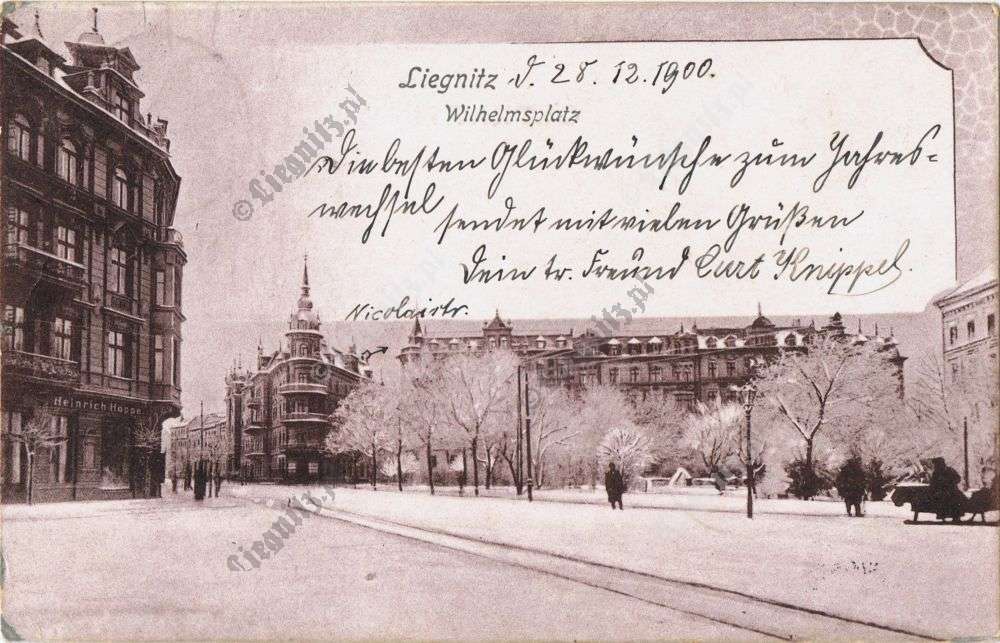 Liegnitz d. 28. 12. 1900.
Wilhelmsplatz
Die besten Glückwünsche zum Jahres-
wechsel sendet mit vielen Grüßen
Dein tr. Freund Curt Knippel.
Nicolaistr.
Heinrich Hoppe
© Liegnitz.pl
© Liegnitz.pl
© Liegnitz.pl